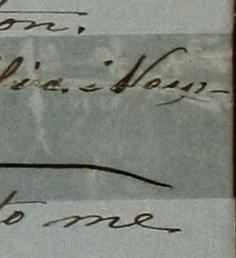 on.
lic. Now-
to me